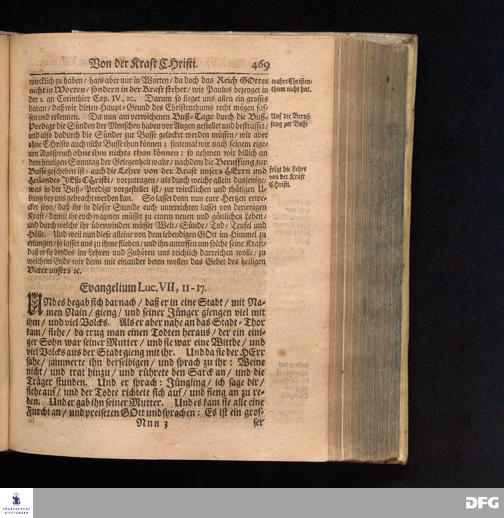 Von der Kraft CHristi. 469
würcklich zu haben / hats aber nur in Worten / da doch das Reich GOttes
nicht in Worten / sondern in der Kraft stehet / wie Paulus bezeuget in
der 1. an Corinthier Cap. IV, 20. Darum so lieget uns allen ein grosses
daran / daß wir diesen Haupt-Grund des Christenthums recht mögen fas-
sen und erkennen. Da nun am verwichenen Buß-Tage durch die Buß-
Predigt die Sünden der Menschen haben vor Augen gestellet und bestraffet /
und also dadurch die Sünder zur Busse gelocket werden müssen / wir aber
ohne Christo auch nicht Busse thun können; sintemal wir nach seinem eige-
nen Ausspruch ohne ihm nichts thun können: so nehmen wir billich an
dem heutigen Sonntag der Gelegenheit wahr / nachdem die Beruffung zur
Busse geschehen ist / auch die Lehre von der Kraft unsers HErrn und
Heilandes JEsu CHristi / vorzutragen / als durch welche allein dasjenige /
was in der Buß-Predigt vorgestellet ist / zur würcklichen und thätigen U-
bung bey uns gebracht werden kan. So lasset denn nun eure Hertzen erwe-
cket seyn / daß ihr in dieser Stunde euch unterrichten lasset von derjenigen
Kraft / damit ihr euch wapnen müsset zu einem neuen und göttlichen Leben /
und durch welche ihr überwinden müsset Welt / Sünde / Tod / Teufel und
Hölle. Und weil nun diese alleine von dem lebendigen GOtt im Himmel zu
erlangen / so lasset uns zu ihme fliehen / und ihn anruffen um solche seine Kraft /
daß er sie beydes im Lehren und Zuhören uns reichlich darreichen wolle / zu
welchem Ende wir denn mit einander beten wollen das Gebet des heiligen
Vater unsers ꝛc.
wahre Christen-
thum nicht hat.
Auf die Beruf-
fung zur Busse
folgt die Lehre
von der Kraft
CHristi.
Evangelium Luc. VII, 11-17.
UNd es begab sich darnach / daß er in eine Stadt / mit Na-
men Nain / gieng / und seiner Jünger giengen viel mit
ihm / und viel Volcks. Als er aber nahe an das Stadt-Thor
kam / siehe / da trug man einen Todten heraus / der ein eini-
ger Sohn war seiner Mutter / und sie war eine Wittbe / und
viel Volcks aus der Stadt gieng mit ihr. Und da sie der HErr
sahe / jammerte ihn derselbigen / und sprach zu ihr: Weine
nicht / und trat hinzu / und rührete den Sarck an / und die
Träger stunden. Und er sprach: Jüngling / ich sage dir /
stehe auf / und der Todte richtete sich auf / und fieng an zu re-
den. Und er gab ihn seiner Mutter. Und es kam sie alle eine
Furcht an / und preiseten GOtt und sprachen: Es ist ein gros-
Nnn 3 ser
FRANCKESCHE
STIFTUNGEN
DFG